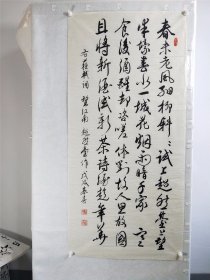 春未老風細柳斜斜試上超然臺上望
半壕春水一城花烟雨暗千家寒
食後酒醒却咨嗟休對故人思故國
且將新試新茶詩酒趁年華
蘇軾詞 望江南 超然臺作 戊戌春